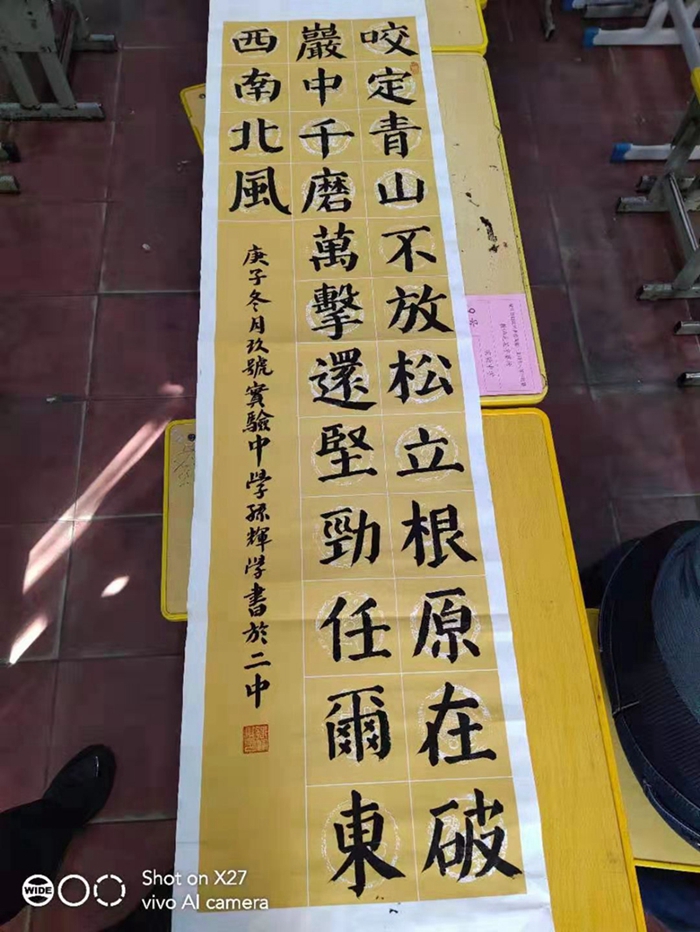 咬定青山不放松立根原在破
巖中千磨萬擊還堅勁任爾東
西南北風
庚子冬月玖號實驗中學孫輝學書於二中
WIDE
Shot on X27
vivo AI camera